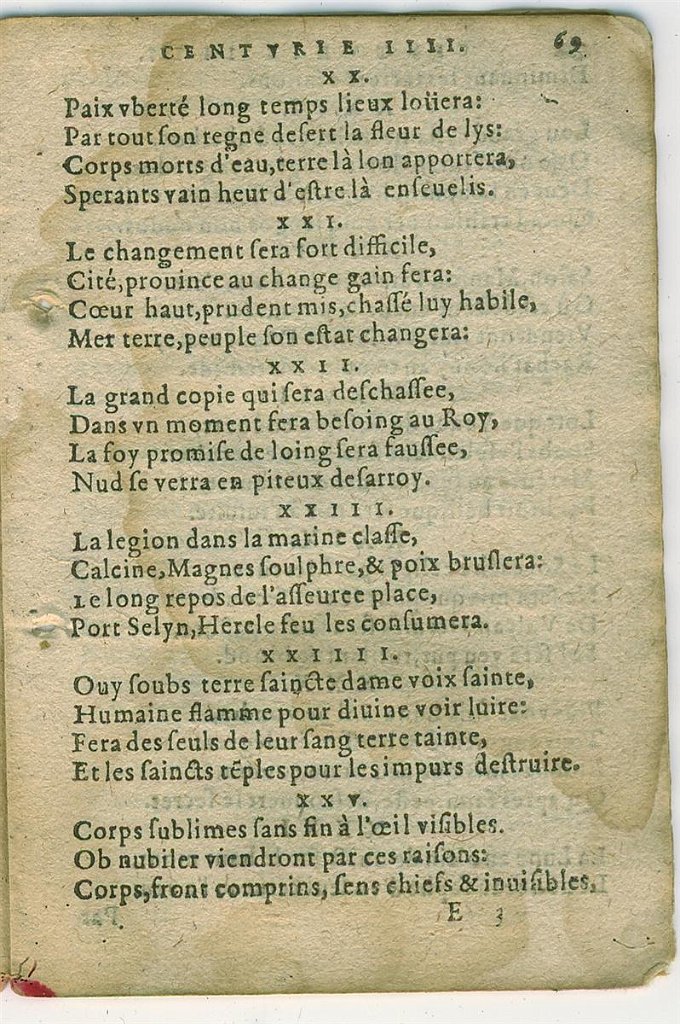 CENTVRIE IIII. 69
XX.
Paix vberté long temps lieux loüera:
Par tout ſon regne deſert la fleur de lys:
Corps morts d'eau,terre là lon apportera,
Sperants vain heur d'eſtre là enſeuelis.
XXI.
Le changement ſera fort difficile,
Cité,prouince au change gain fera:
Cœur haut,prudent mis,chaſſé luy habile,
Mer terre,peuple ſon eſtat changera:
XXII.
La grand copie qui ſera deſchaſſee,
Dans vn moment fera beſoing au Roy,
La foy promiſe de loing ſera fauſſee,
Nud ſe verra en piteux deſarroy.
XXIII.
La legion dans la marine claſſe,
Calcine,Magnes ſoulphre,& poix bruſlera:
Le long repos de l'aſſeuree place,
Port Selyn,Hercle feu les conſumera.
XXIIII.
Ouy ſoubs terre ſaincte dame voix ſainte,
Humaine flamme pour diuine voir luire:
Fera des ſeuls de leur ſang terre tainte,
Et les ſaincts tēples pour les impurs deſtruire.
XXV.
Corps ſublimes ſans fin à l'œil viſibles.
Ob nubiler viendront par ces raiſons:
Corps,front comprins, ſens chiefs & inuiſibles,
E 3